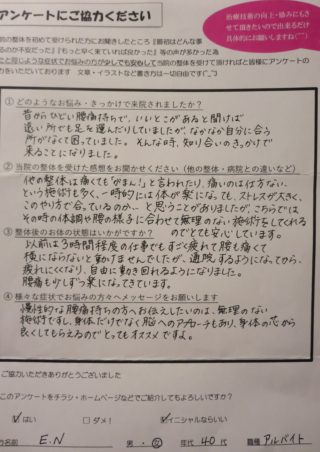 アンケートにご協力ください
治療技術の向上・励みにもさせて頂きたいので出来るだけ具体的にお願いしますね(^^)
前の整体を初めて受けられた方にお聞きしたところ『最初はどんな事
るのか不安だった』『もっと早く来ていれば良かった』等の声が多かった為
たと同じような症状でお悩みの方が少しでも安心して当院の整体を受けて頂ければと皆様にアンケートの
力をいただいております 文章・イラストなど書き方は一切自由です(^_^)
①どのようなお悩み・きっかけで来院されましたか？
昔からひどい腰痛持ちで、いいとこがあると聞けば
遠い所でも足を運んだりしていましたが、なかなか自分に合う
所がなくて困っていました。そんな時、知り合いのきっかけで
来ることになりました。
②当院の整体を受けた感想をお聞かせください（他の整体・病院との違いなど）
他の整体は痛くても「がまん！」と言われたり、痛いのは仕方ない
という施術も多く、一時的には体が楽になっても、ストレスが大きく、
このやり方で合っているのか…と思うことがありましたが、こちらでは
その時の体調や腰の様子に合わせて無理のない施術をしてくれる
のでとても安心しています。
③整体後のお体の状態はいかがですか？
以前は3時間程度の仕事でもすごく疲れて腰も痛くて
横にならないと動けませんでしたが、通院するようになってから
疲れにくくなり、自由に動き回れるようになりました。
腰痛も少しずつ楽になってきています。
④様々な症状でお悩みの方々へメッセージをお願いします
慢性的な腰痛持ちの方へお伝えしたいのは、無理のない
施術ですし、身体だけでなく脳へのアプローチもあり、身体の芯から
良くしてもらえるのでとってもオススメですよ。
ご協力いただきありがとうございました
このアンケートをチラシ・ホームページなどでご紹介してもよろしいですか？
はい □ダメ！ イニシャルならいい
方名前 E.N 男・女 年代 40代 職種 アルバイト